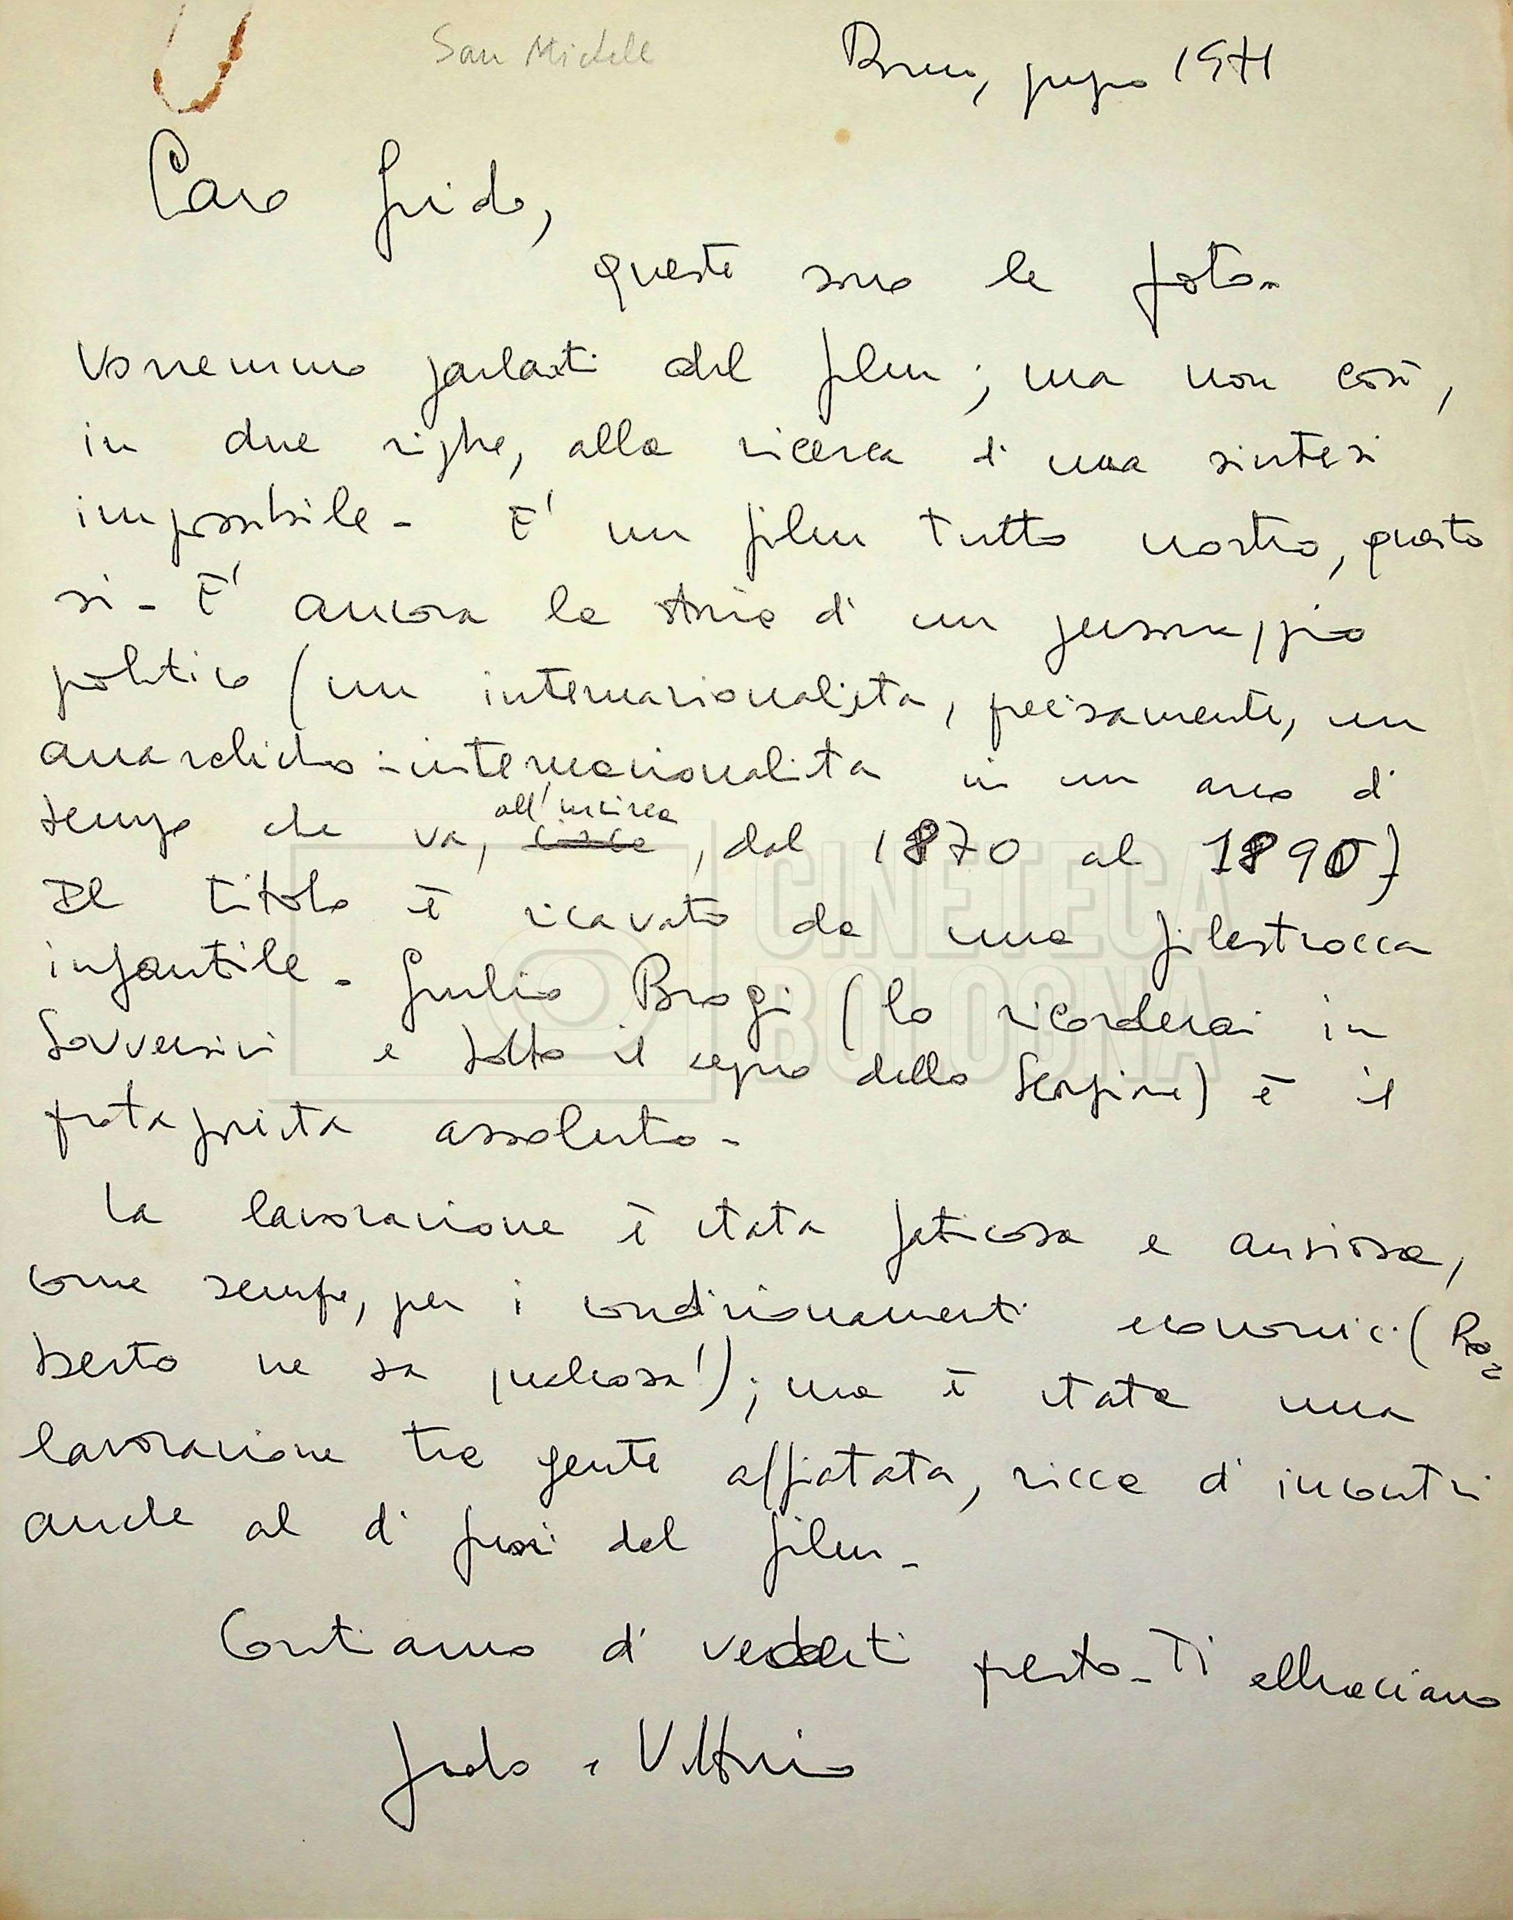 San Michele
Roma, giugno 1971
Caro Guido,
queste sono le foto-
Vorremmo parlarti del film; ma non così,
in due righe, alla ricerca di una sintesi
impossibile - E' un film tutto nostro, questo
si - E' ancora la storia di un personaggio
politico (un internazionalista, precisamente, un
anarchico-internazionalista in un arco di
tempo che va, all'incirca, dal 1870 al 1890)
Il titolo è ricavato da una filastrocca
infantile - Giulio Brogi (lo ricorderai in
Sovversivi e Sotto il segno dello Scorpione) è il
protagonista assoluto -
La lavorazione è stata faticosa e ansiosa,
come sempre, per i condizionamenti economici (Ro=
berto ne sa qualcosa!); ma è stata una
lavorazione tra gente affiatata, ricca di incontri
anche al di fuori del film -
Contiamo di vederti presto - Ti abbracciano
Paolo e Vittorio
CINETECA
BOLOGNA